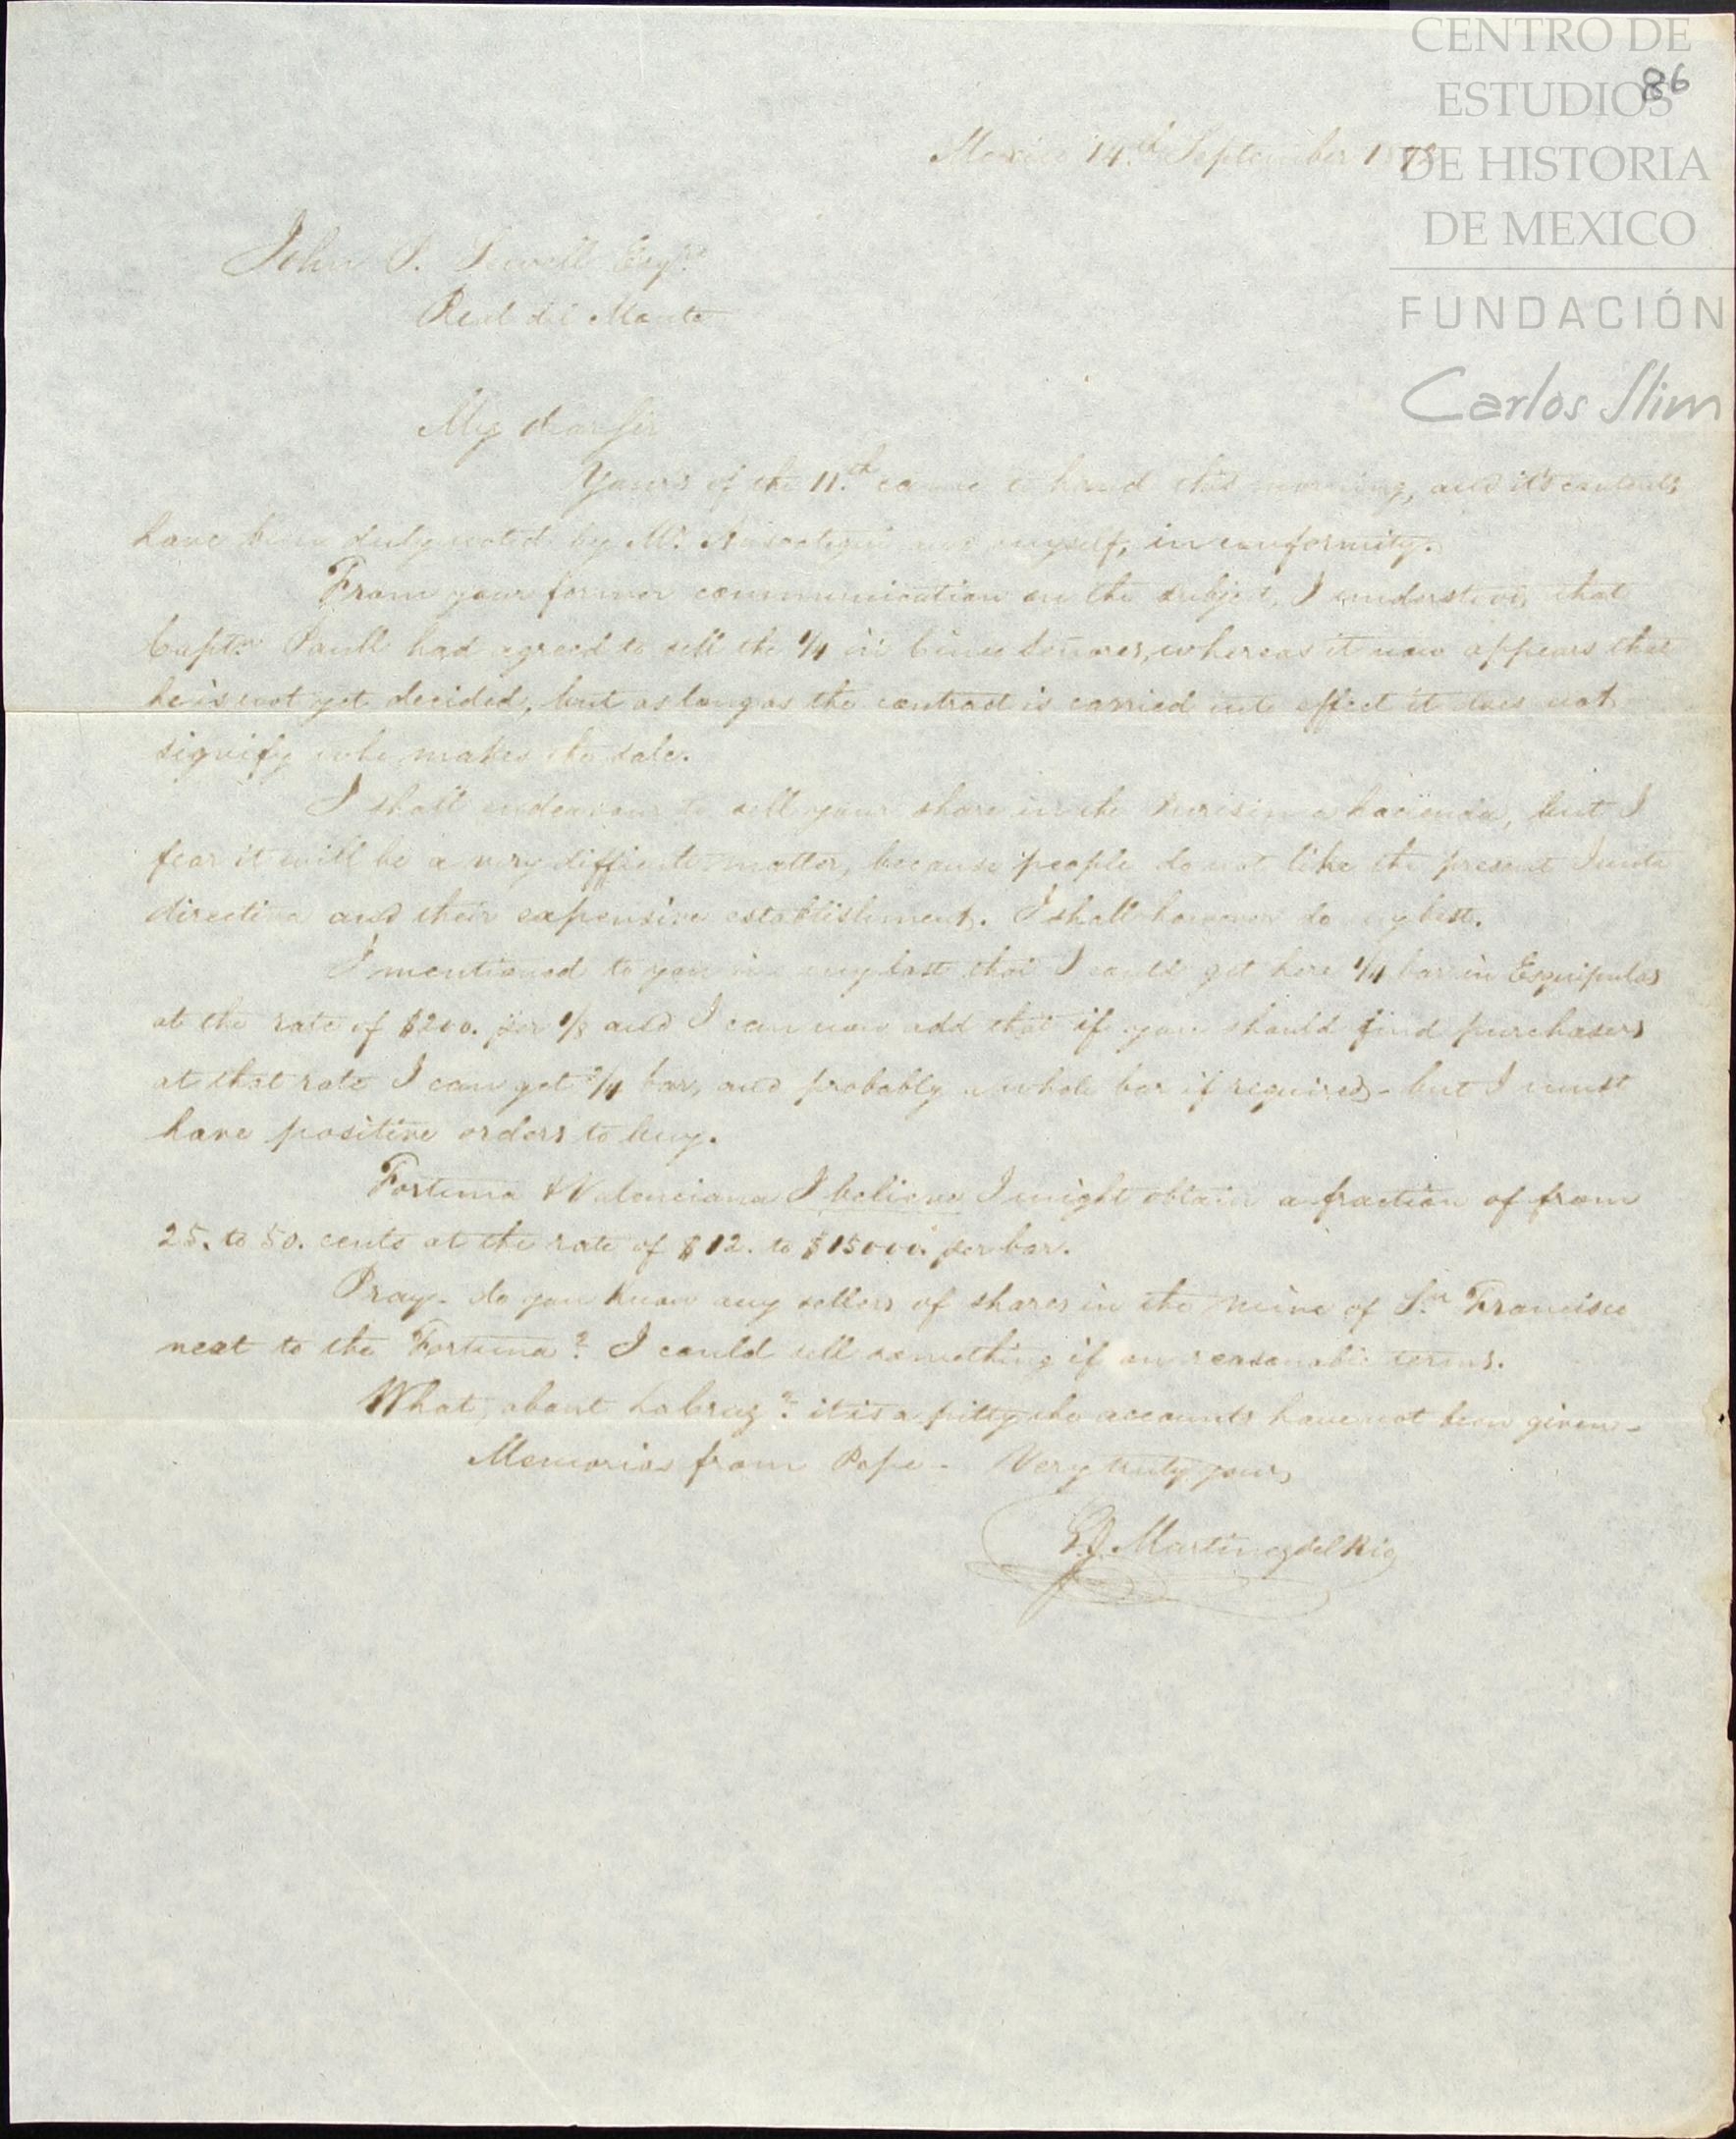 CENTRO DE
ESTUDIOS
DE HISTORIA
DE MEXICO
FUNDACIÓN
Carlos Slim
86
Mexico 14th September
John S.
Real del Monte
My dear Sir
Yours of the 11th came to hand this morning, and its contents
have been duly noted by Mr. and myself, in conformity.
From your former communication on the subject, I understood, that
Captn. Paull had agreed to sell the 1/4 in whereas it now appears that
he is not yet decided, but as long as the contract is carried into effect it does not
signify who makes the sale.
I shall endeavour to sell your share in the hacienda, but I
fear it will be a very difficult matter, because people do not like the present Junta
directiva and their expensive establishment. I shall however do my best.
I mentioned to you in my last that I could get here 1/4 bar in Esquipulas
at the rate of $200. per 1/8 and I can now add that if you should find purchasers
at that rate I can get 3/4 bar, and probably a whole bar if required - but I must
have positive orders to buy.
Fortuna & Valenciana I believe I might obtain a fraction of from
25. to 50. cents at the rate of $12. to $15000. per bar.
Pray - do you know any sellers of shares in the mine of Sn. Francisco
next to the Fortuna? I could sell something if on reasonable terms.
What about it is a pitty the accounts have not been given -
Memorias from Pepe - Very truly yours
Martinez del Rio